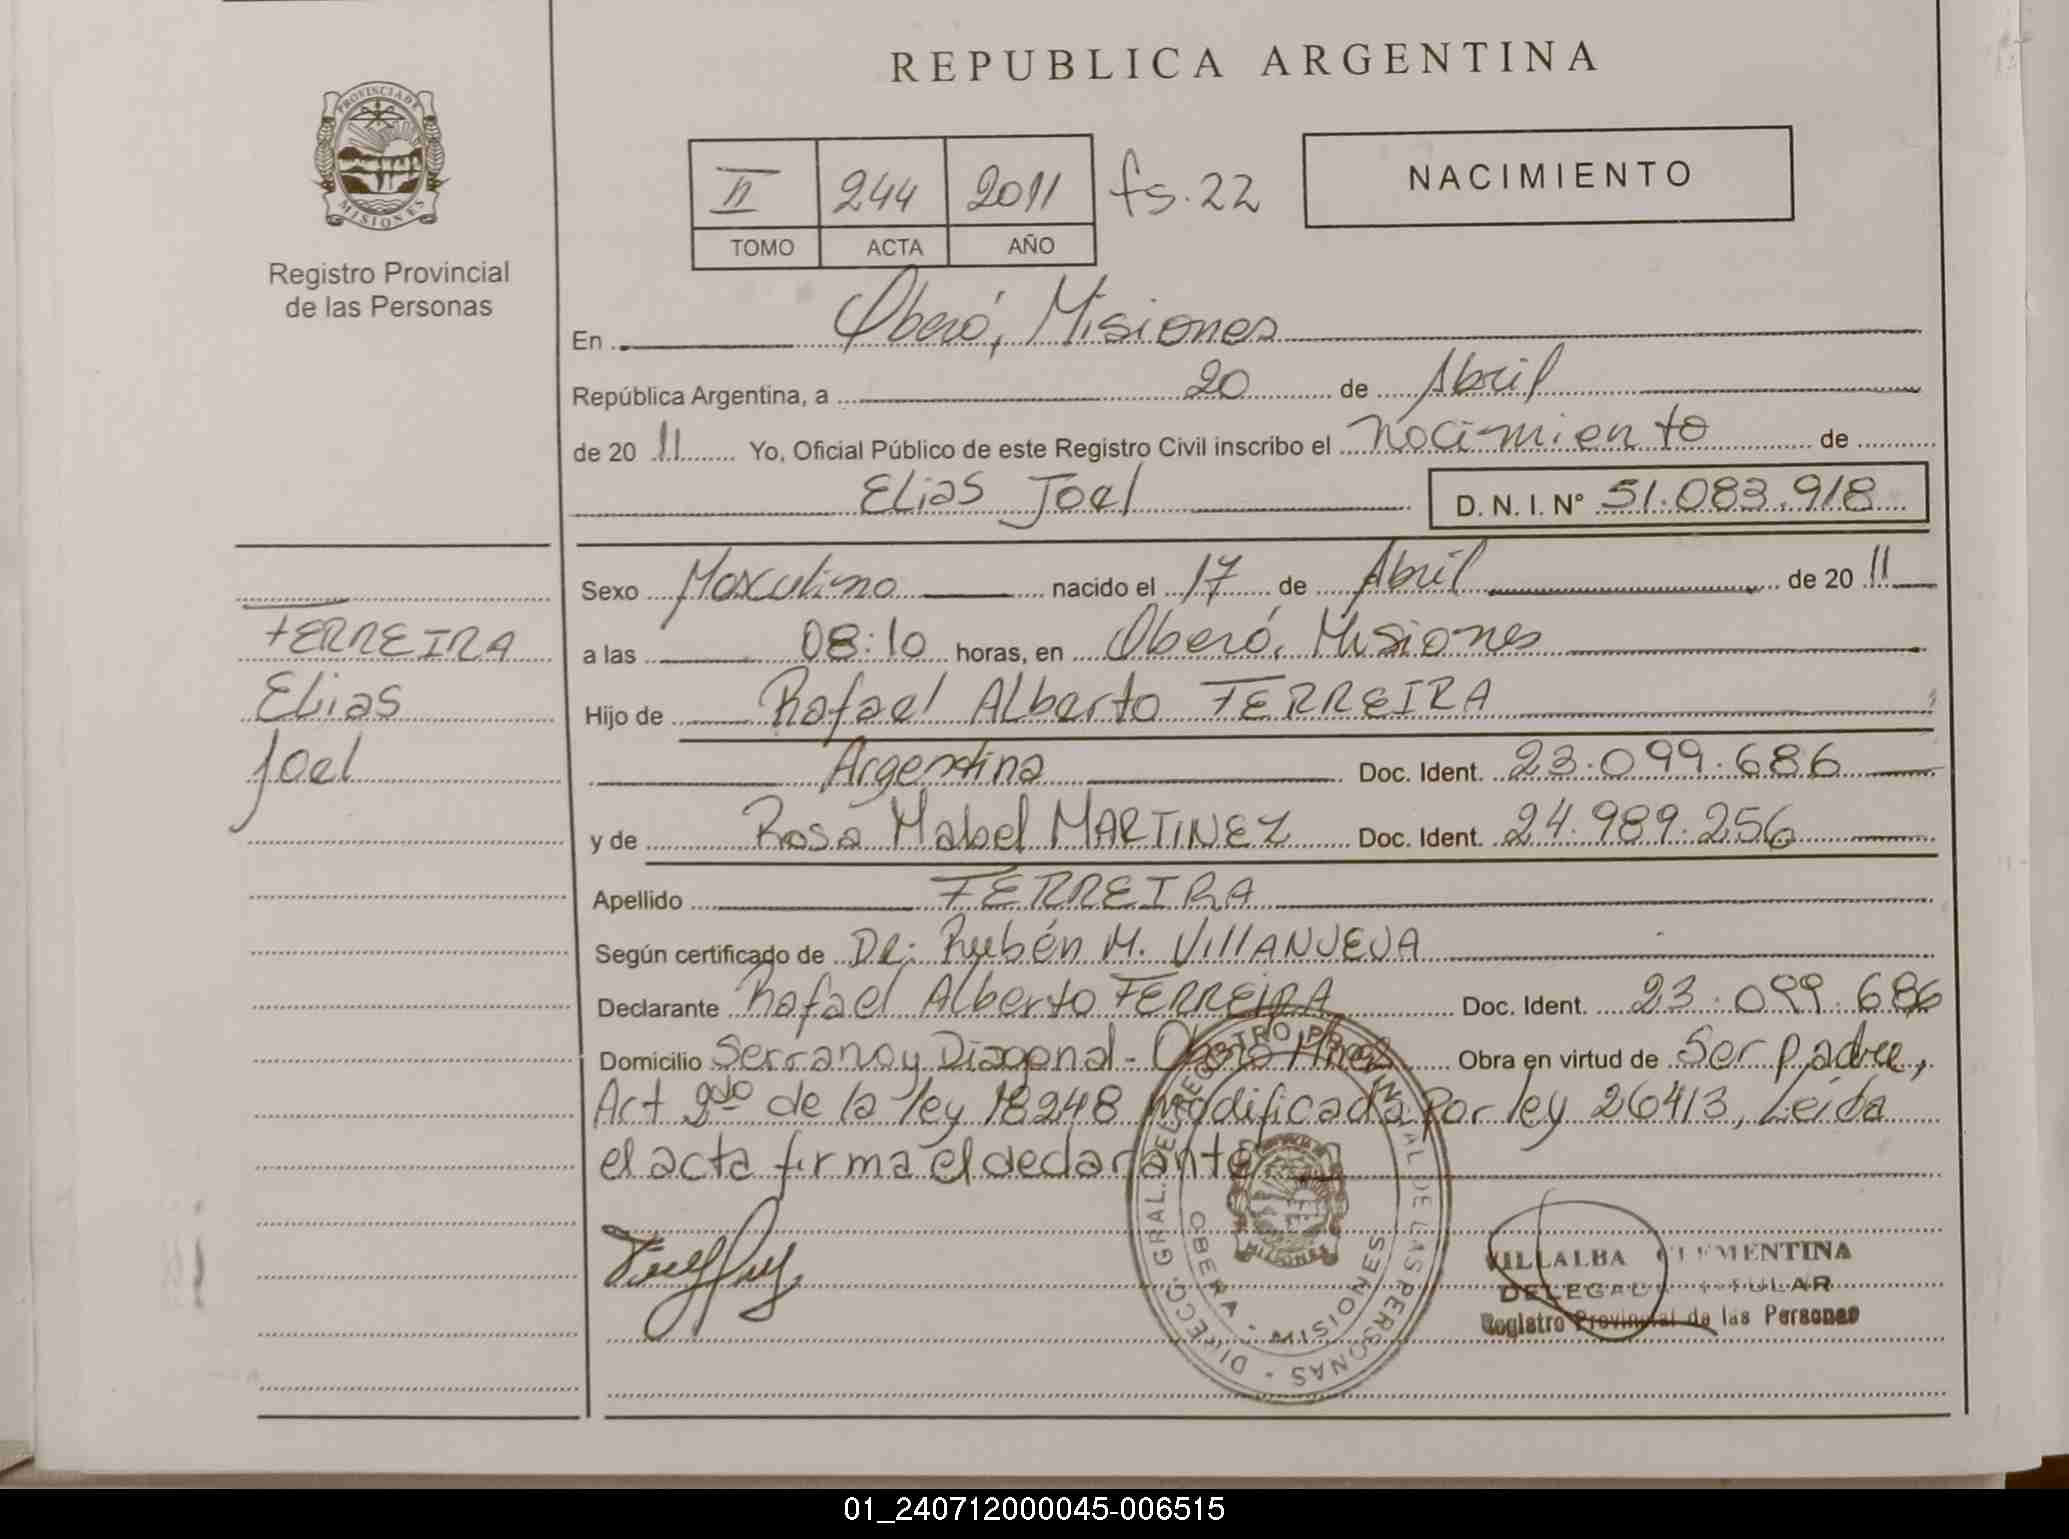 REPUBLICA ARGENTINA
PROVINCIA DE
MISIONES
Registro Provincial
de las Personas
II 244 2011 fs. 22
TOMO ACTA AÑO
NACIMIENTO
En Oberá, Misiones
República Argentina, a 20 de Abril
de 20 11 Yo, Oficial Público de este Registro Civil inscribo el Nacimiento de
Elias Joel D. N. I. Nº 51.083.918
Sexo Masculino nacido el 17 de Abril de 20 11
a las 08:10 horas, en Oberá, Misiones
Hijo de Rafael Alberto FERREIRA
Argentina Doc. Ident. 23.099.686
y de Rosa Mabel MARTINEZ Doc. Ident. 24.989.256
Apellido FERREIRA
Según certificado de Dr: Rubén M. VillANUEVA
Declarante Rafael Alberto FERREIRA Doc. Ident. 23.099.686
Domicilio Serrano y Diagonal - Oberá Mnes Obra en virtud de Ser padre,
Act 2do de la ley 18248 Modificada Por ley 26413, Leída
el acta firma el declarante
FERREIRA
Elias
Joel
DIRECC. GRAL. DEL REGISTRO PROVINCIAL DE LAS PERSONAS
OBERA - MISIONES
VILLALBA CLEMENTINA
DELEGADA TITULAR
Registro Provincial de las Personas
01_240712000045-006515